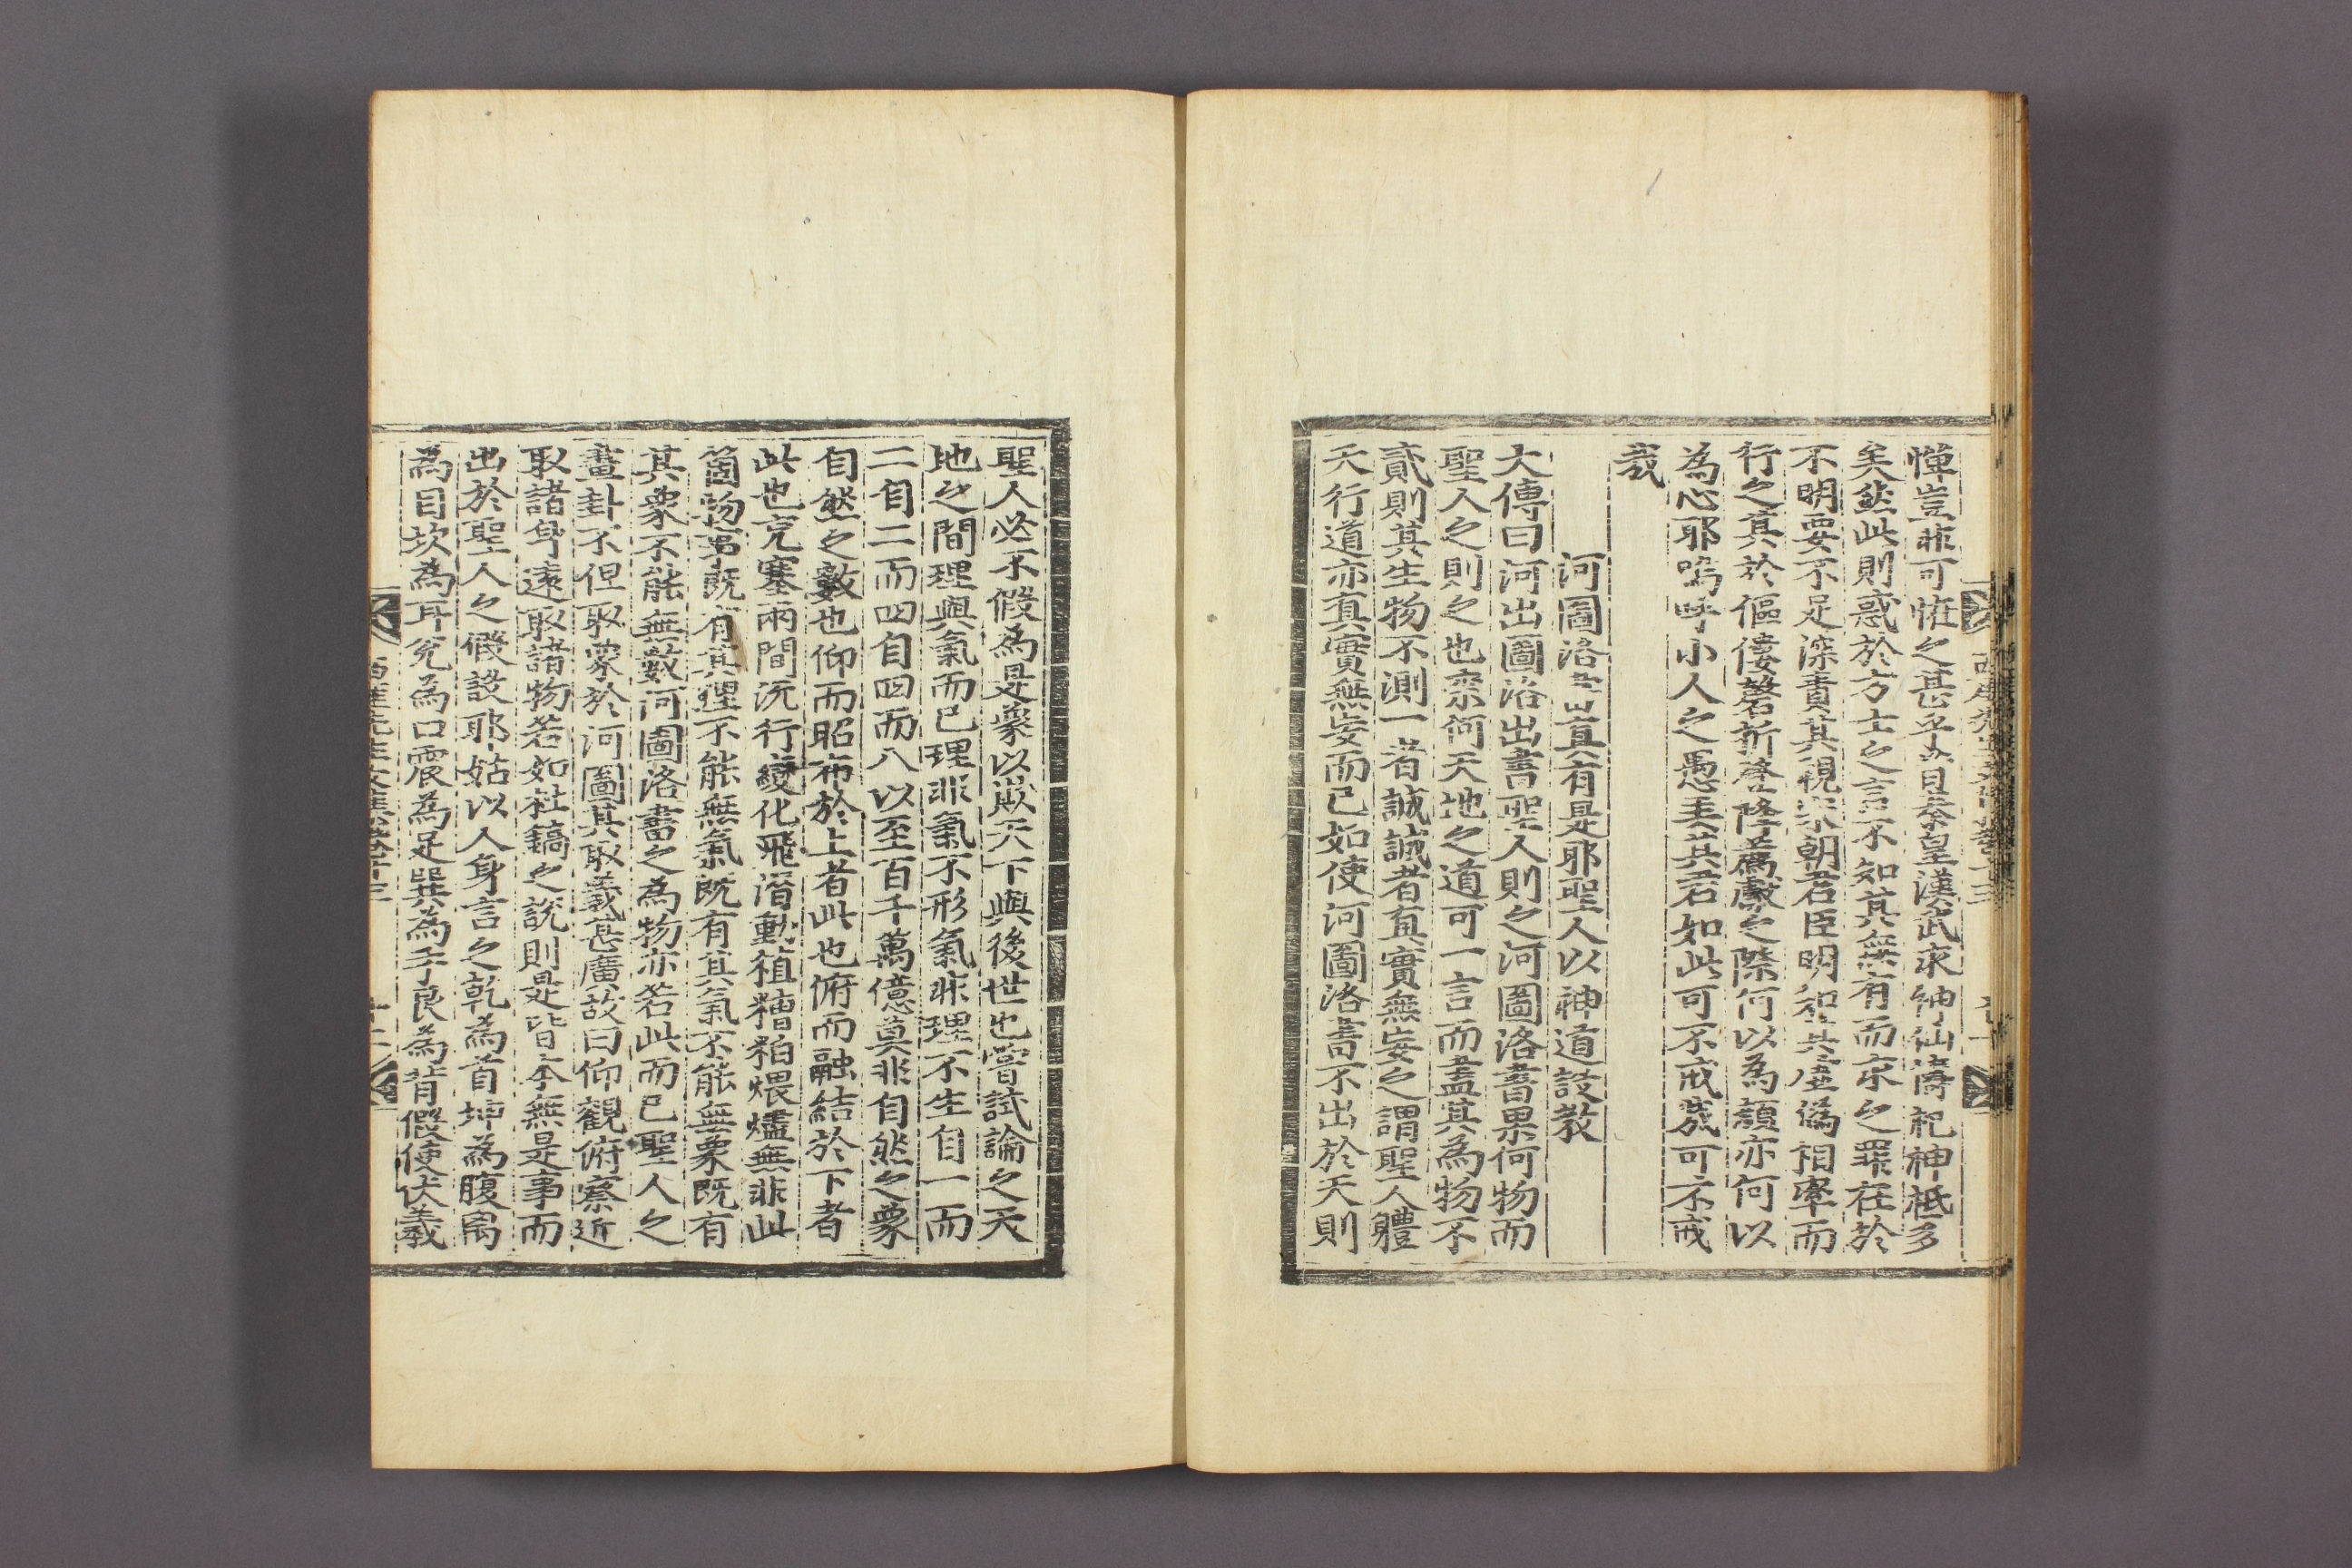 憚豈非可恠之甚乎昔秦皇漢武求神仙禱祀神祗多
矣然此則惑於方士之言不知其無有而求之罪在於
不明要不足深責其視宋朝君臣明知其虛僞相率而
行之其於傴僂磬折登降薦獻之際何以為顔亦何以
為心耶嗚呼小人之愚其君如此可不戒哉可不戒
哉
河圖洛書真有是耶聖人以神道設教
大傳曰河出圖洛出書聖人則之河圖洛書果何物而
聖人之則之也柰何天地之道可一言而盡其為物不
貳則其生物不測一者誠誠者真實無妄之謂聖人軆
天行道亦真實無妄而已如使河圖洛書不出於天則
聖人必不假為是象以欺天下與後世也嘗試論之天
地之間理與氣而已理非氣不形氣非理不生自一而
二自二而四自四而八以至百千萬億莫非自然之象
自然之數也仰而昭布於上者此也俯而融結於下者
此也充塞兩間流行變化飛潛動植糟粕煨燼無非此
箇物事既有其理不能無氣既有其氣不能無象既有
其象不能無數河圖洛書之為物亦若此而已聖人之
畫卦不但取象於河圖其取義甚廣故曰仰觀俯察近
取諸身遠取諸物若如杜鎬之說則是皆本無是事而
出於聖人之假設耶姑以人身言之乾為首坤為腹离
為目坎為耳兌為口震為足巽為手艮為背假使伏羲